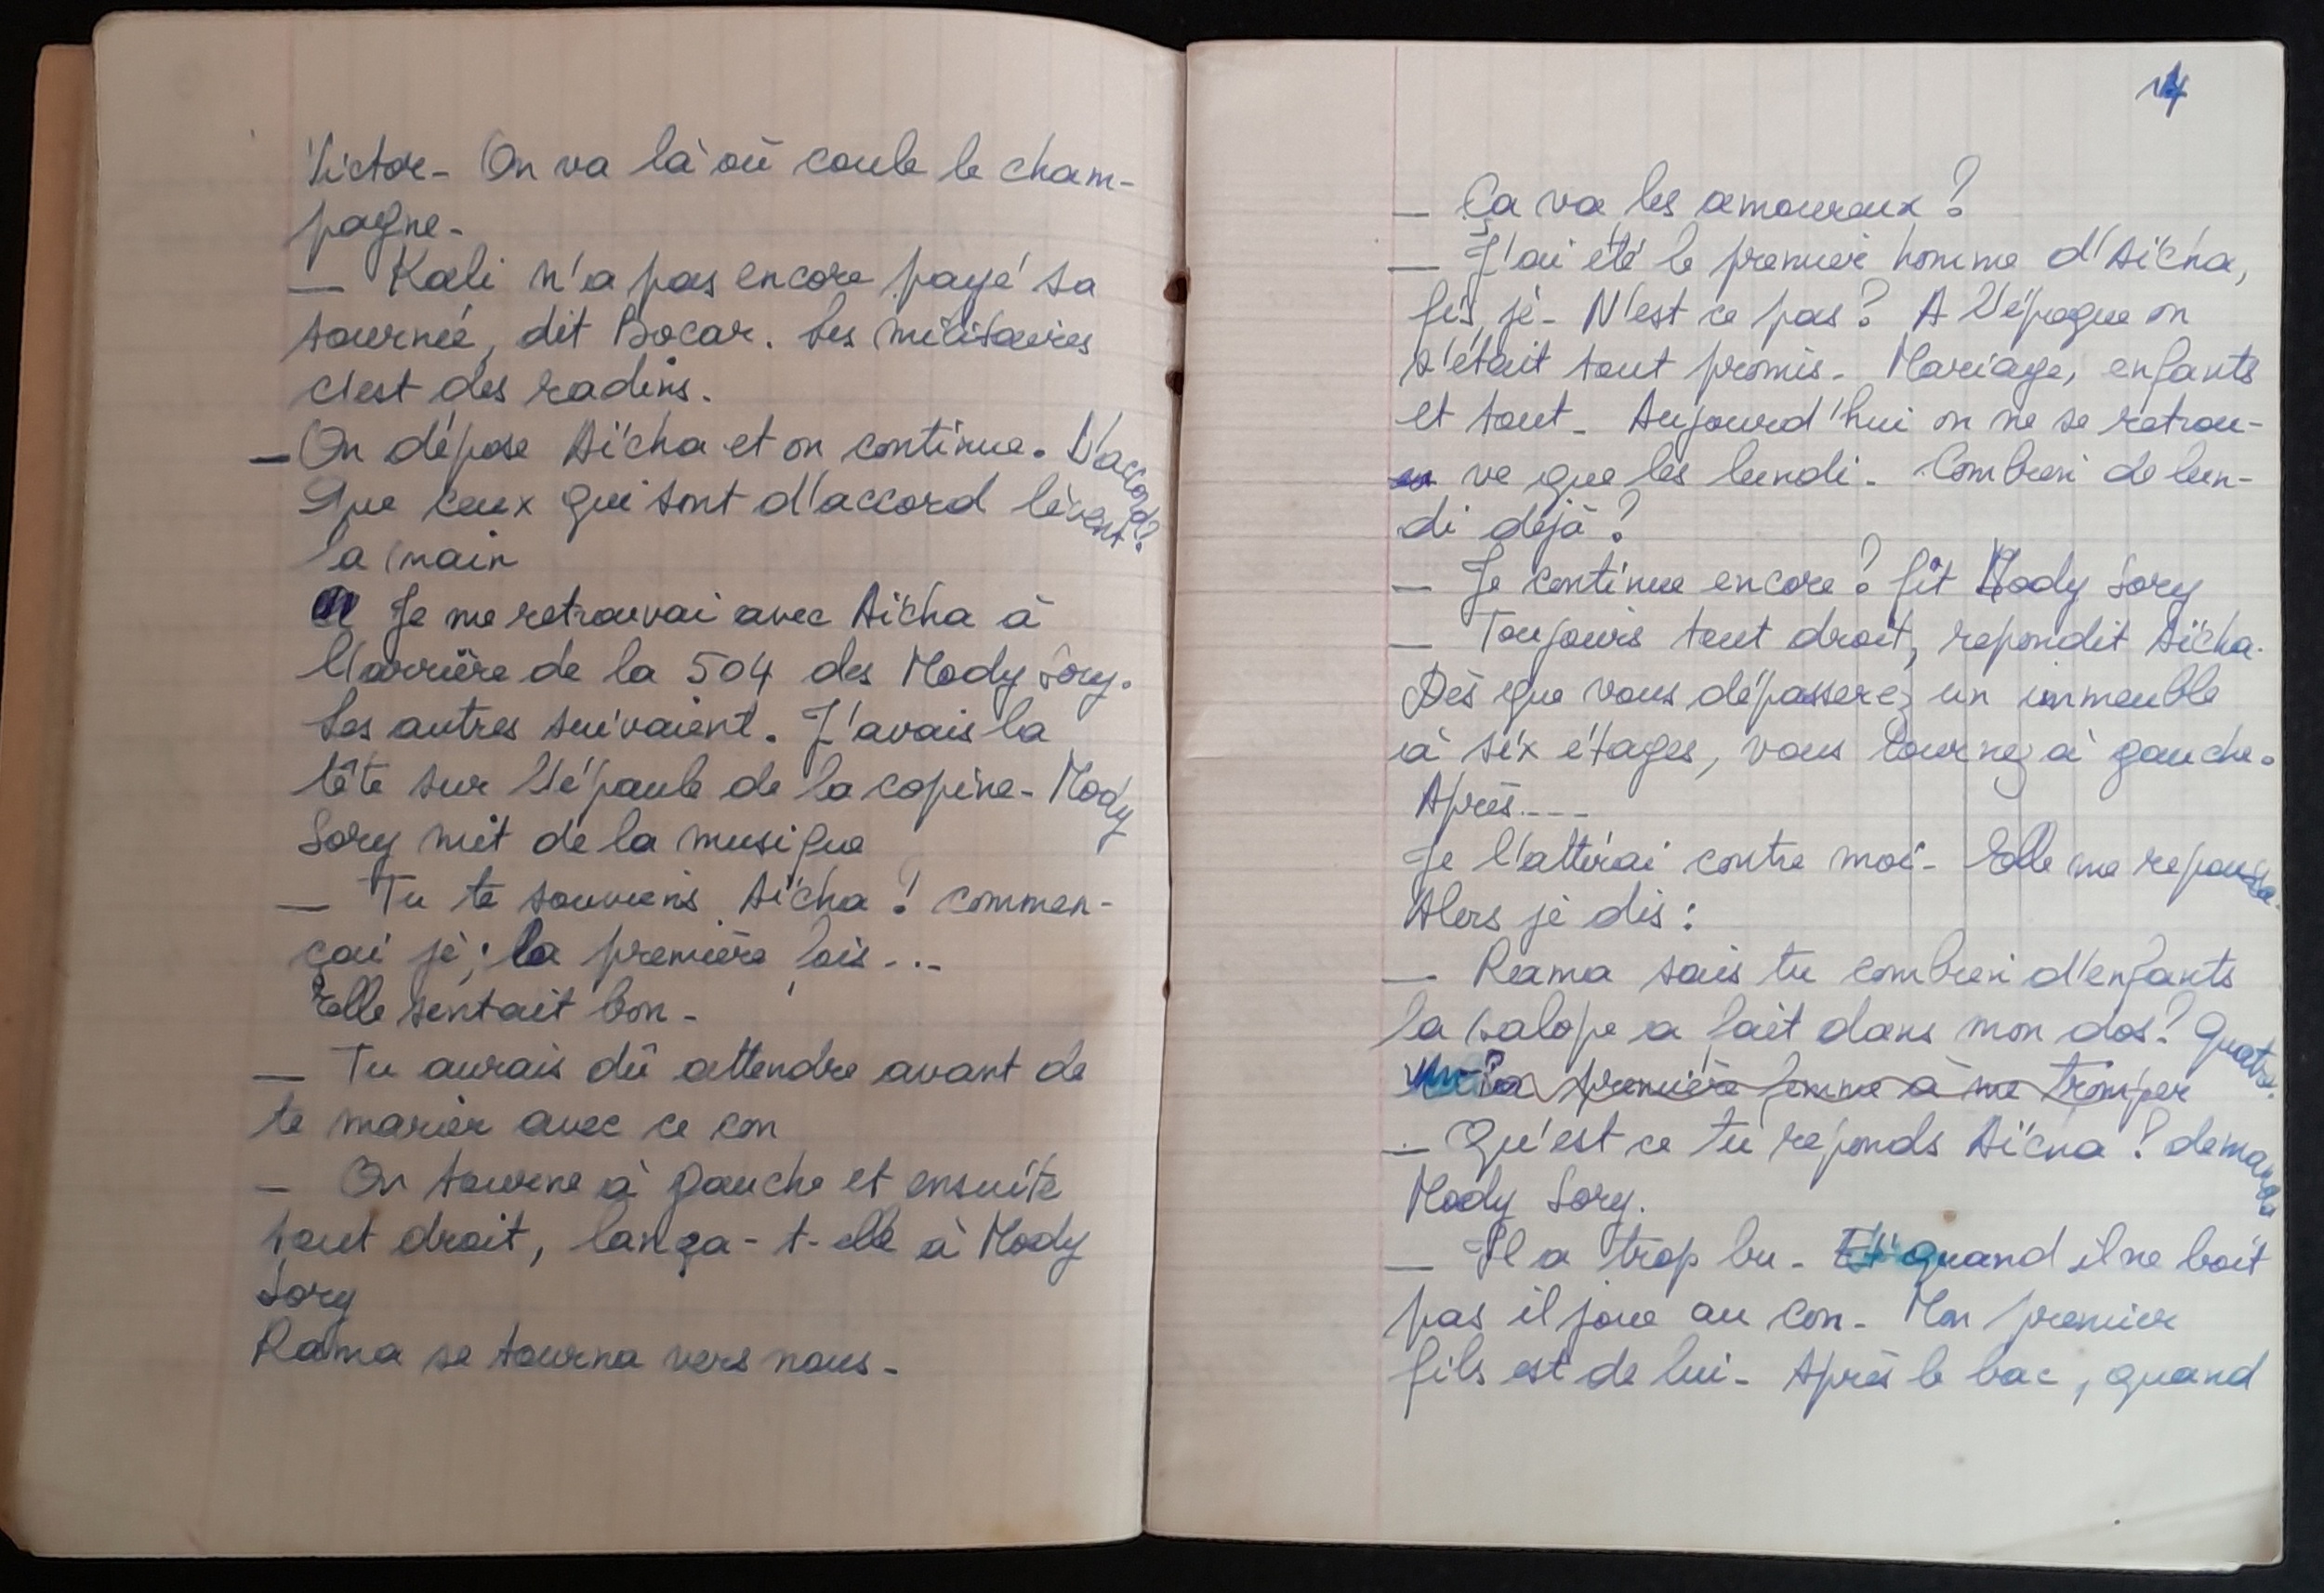 Victor - On va là où coule le cham-
pagne -
— Kali n'a pas encore payé sa
tournée, dit Bocar. Les militaires
c'est des radins.
— On dépose Aïcha et on continue. D'accord?
Que ceux qui sont d'accord lèvent
la main
Je me retrouvai avec Aïcha à
l'arrière de la 504 des Mody Sory.
Les autres suivaient. J'avais la
tête sur l'épaule de la copine - Mody
Sory mit de la musique
— Tu te souviens Aïcha ! commen-
çai je; la première fois...
Elle sentait bon -
— Tu aurais dû attendre avant de
te marier avec ce con
— On tourne à gauche et ensuite
tout droit, lança-t-elle à Mody
Sory
Rama se tourna vers nous -
14
— Ça va les amoureux ?
— J'ai été le premier homme d'Aïcha,
fis, je - N'est ce pas ? A l'époque on
s'était tout promis - Mariage, enfants
et tout - Aujourd'hui on ne se retrou-
ve que les lundi - Combien de lun-
di déjà ?
— Je continue encore ? fit Mody Sory
— Toujours tout droit, repondit Aïcha.
Dès que vous dépasserez un immeuble
à six étages, vous tournez à gauche.
Après....
Je l'attirai contre moi - Elle me repoussa.
Alors je dis :
— Rama sais tu combien d'enfants
la salope a fait dans mon dos ? Quatre.
la première femme à me tromper
— Qu'est ce tu reponds Aïcha ? demanda
Mody Sory.
— Il a trop bu - Et quand il ne boit
pas il joue au con - Mon premier
fils est de lui - Après le bac, quand